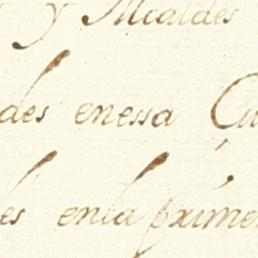 y Alcaldes
des enessa Çiu
les enla primer